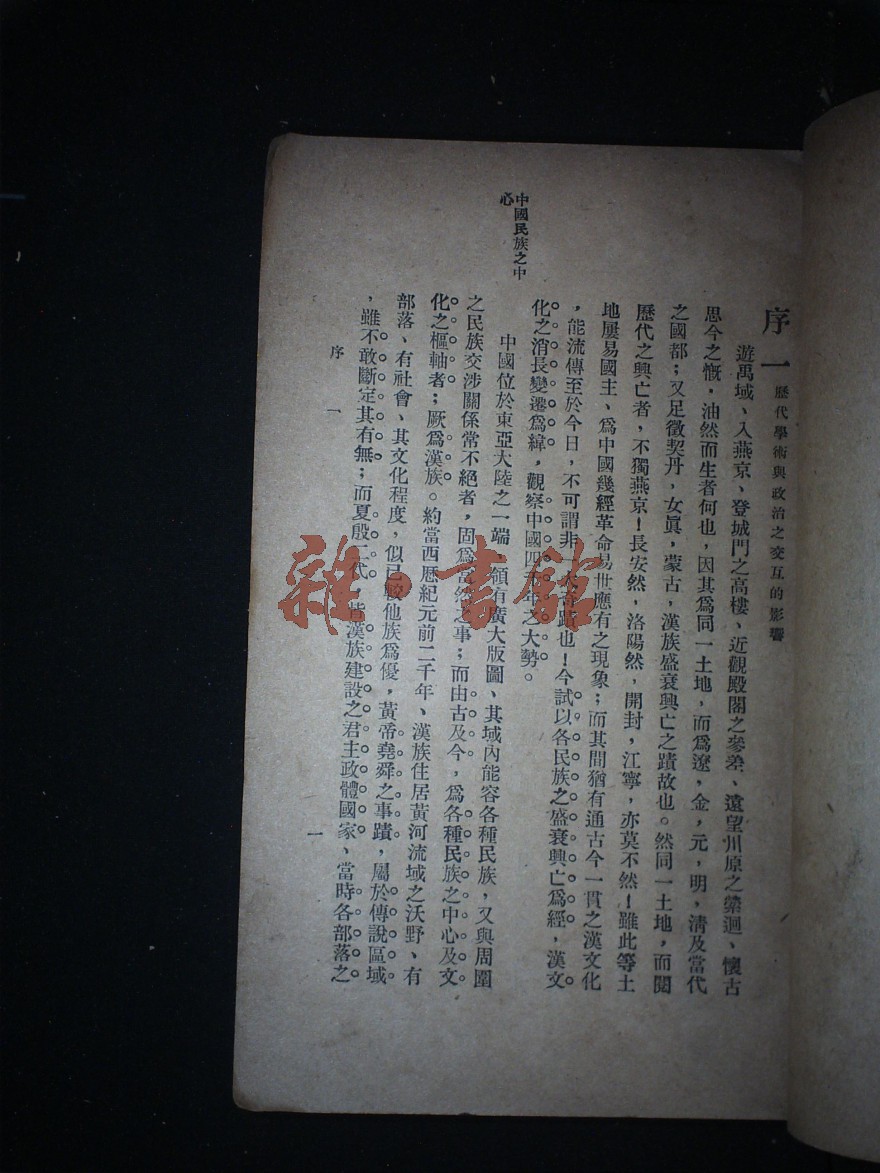 序一 歷代學術與政治之交互的影響
遊禹域、入燕京、登城門之高樓、近觀殿閣之參差、遠望州原之縈迴、懷古
思今之慨，油然而生者何也，因其爲同一土地，而爲遼，金，元，明，清及當代
之國都；又足徵契丹，女眞，蒙古，漢族盛衰興亡之蹟故也。然同一土地，而閱
歷代之興亡者，不獨燕京！長安然，洛陽然，開封，江寧，亦莫不然！雖此等土
地屢易國主、爲中國幾經革命易世應有之現象；而其間猶有通古今一貫之漢文化
，能流傳至於今日，不可謂非一大奇蹟也！今試以各民族之盛衰興亡爲經，漢文
化之消長變遷爲緯，觀察中國四千年之大勢。
中國民族之中
心
中國位於東亞大陸之一端、領有廣大版圖、其域內能容各種民族，又與周圍
之民族交涉關係常不絕者，固爲當然之事；而由古及今，爲各種民族之中心及文
化之樞軸者；厥爲漢族。約當西曆紀元前二千年、漢族住居黃河流域之沃野、有
部落、有社會、其文化程度，似已較他族爲優，黃帝堯舜之事蹟，屬於傳說區域
，雖不敢斷定其有無；而夏殷二代，皆漢族建設之君主政體國家、當時各部落之
序 一
一
雜·書館